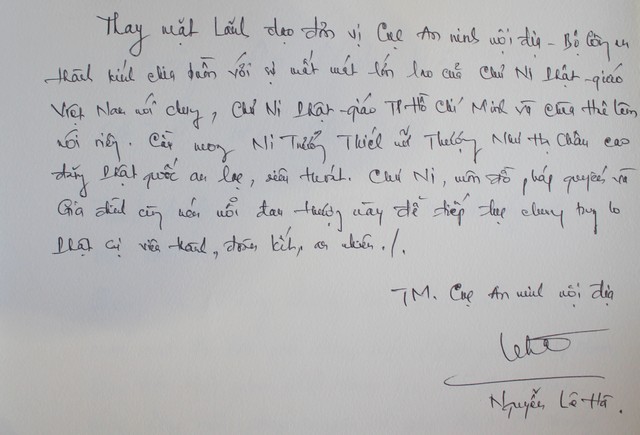 Thay mặt Lãnh đạo đơn vị Cục An ninh nội địa - Bộ Công an
thành kính chia buồn với sự mất mát lớn lao của Chư Ni Phật-giáo
Việt Nam nói chung, Chư Ni Phật-giáo TP Hồ Chí Minh và chùa
nói riêng. Cầu mong Ni Trưởng Thiết nữ Thượng Như Hạ Châu cao
đăng Phật quốc an lạc, siêu thoát. Chư Ni, môn đồ pháp quyến và
Gia đình cùng nén nỗi đau thương này để tiếp tục chung tay lo
Phật sự viên thành, đoàn kết, an nhiên./.
TM. Cục An ninh nội địa
Nguyễn Lê Hà.